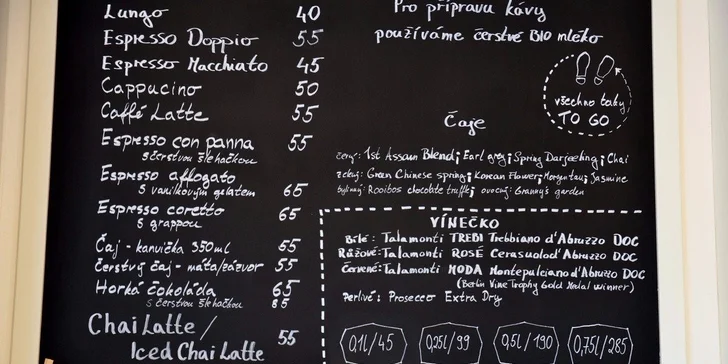 Lungo 40
Espresso Doppio 55
Espresso Macchiato 45
Cappucino 50
Caffé Latte 55
Espresso con panna 55
s čerstvou šlehačkou
Espresso affogato
s vanilkovým gelatem 65
Espresso coretto 65
s grappou
Čaj - kanvička 350ml 55
Čerstvý čaj - máta/zázvor 55
Horká čokoláda 65
s čerstvou šlehačkou 85
Chai Latte /
Iced Chai Latte 55
Pro přípravu kávy
používáme čerstvé BIO mléko
všechno taky
TO GO
Čaje
černý: 1st Assam Blend; Earl grey; Spring Darjeeling; Chai
zelený: Green Chinese spring; Korean Flower; Morgentau; Jasmine
bylinný: Rooibos chocolate truffle; ovocný: Granny's garden
VÍNEČKO
Bílé: Talamonti TREBI Trebbiano d'Abruzzo DOC
Růžové: Talamonti ROSÉ Cerasuolo d'Abruzzo DOC
Červené: Talamonti MODA Montepulciano d'Abruzzo DOC
(Berlin Wine Trophy Gold Medal winner)
Perlivé: Prosecco Extra Dry
0,1l/45 0,25l/99 0,5l/190 0,75l/285